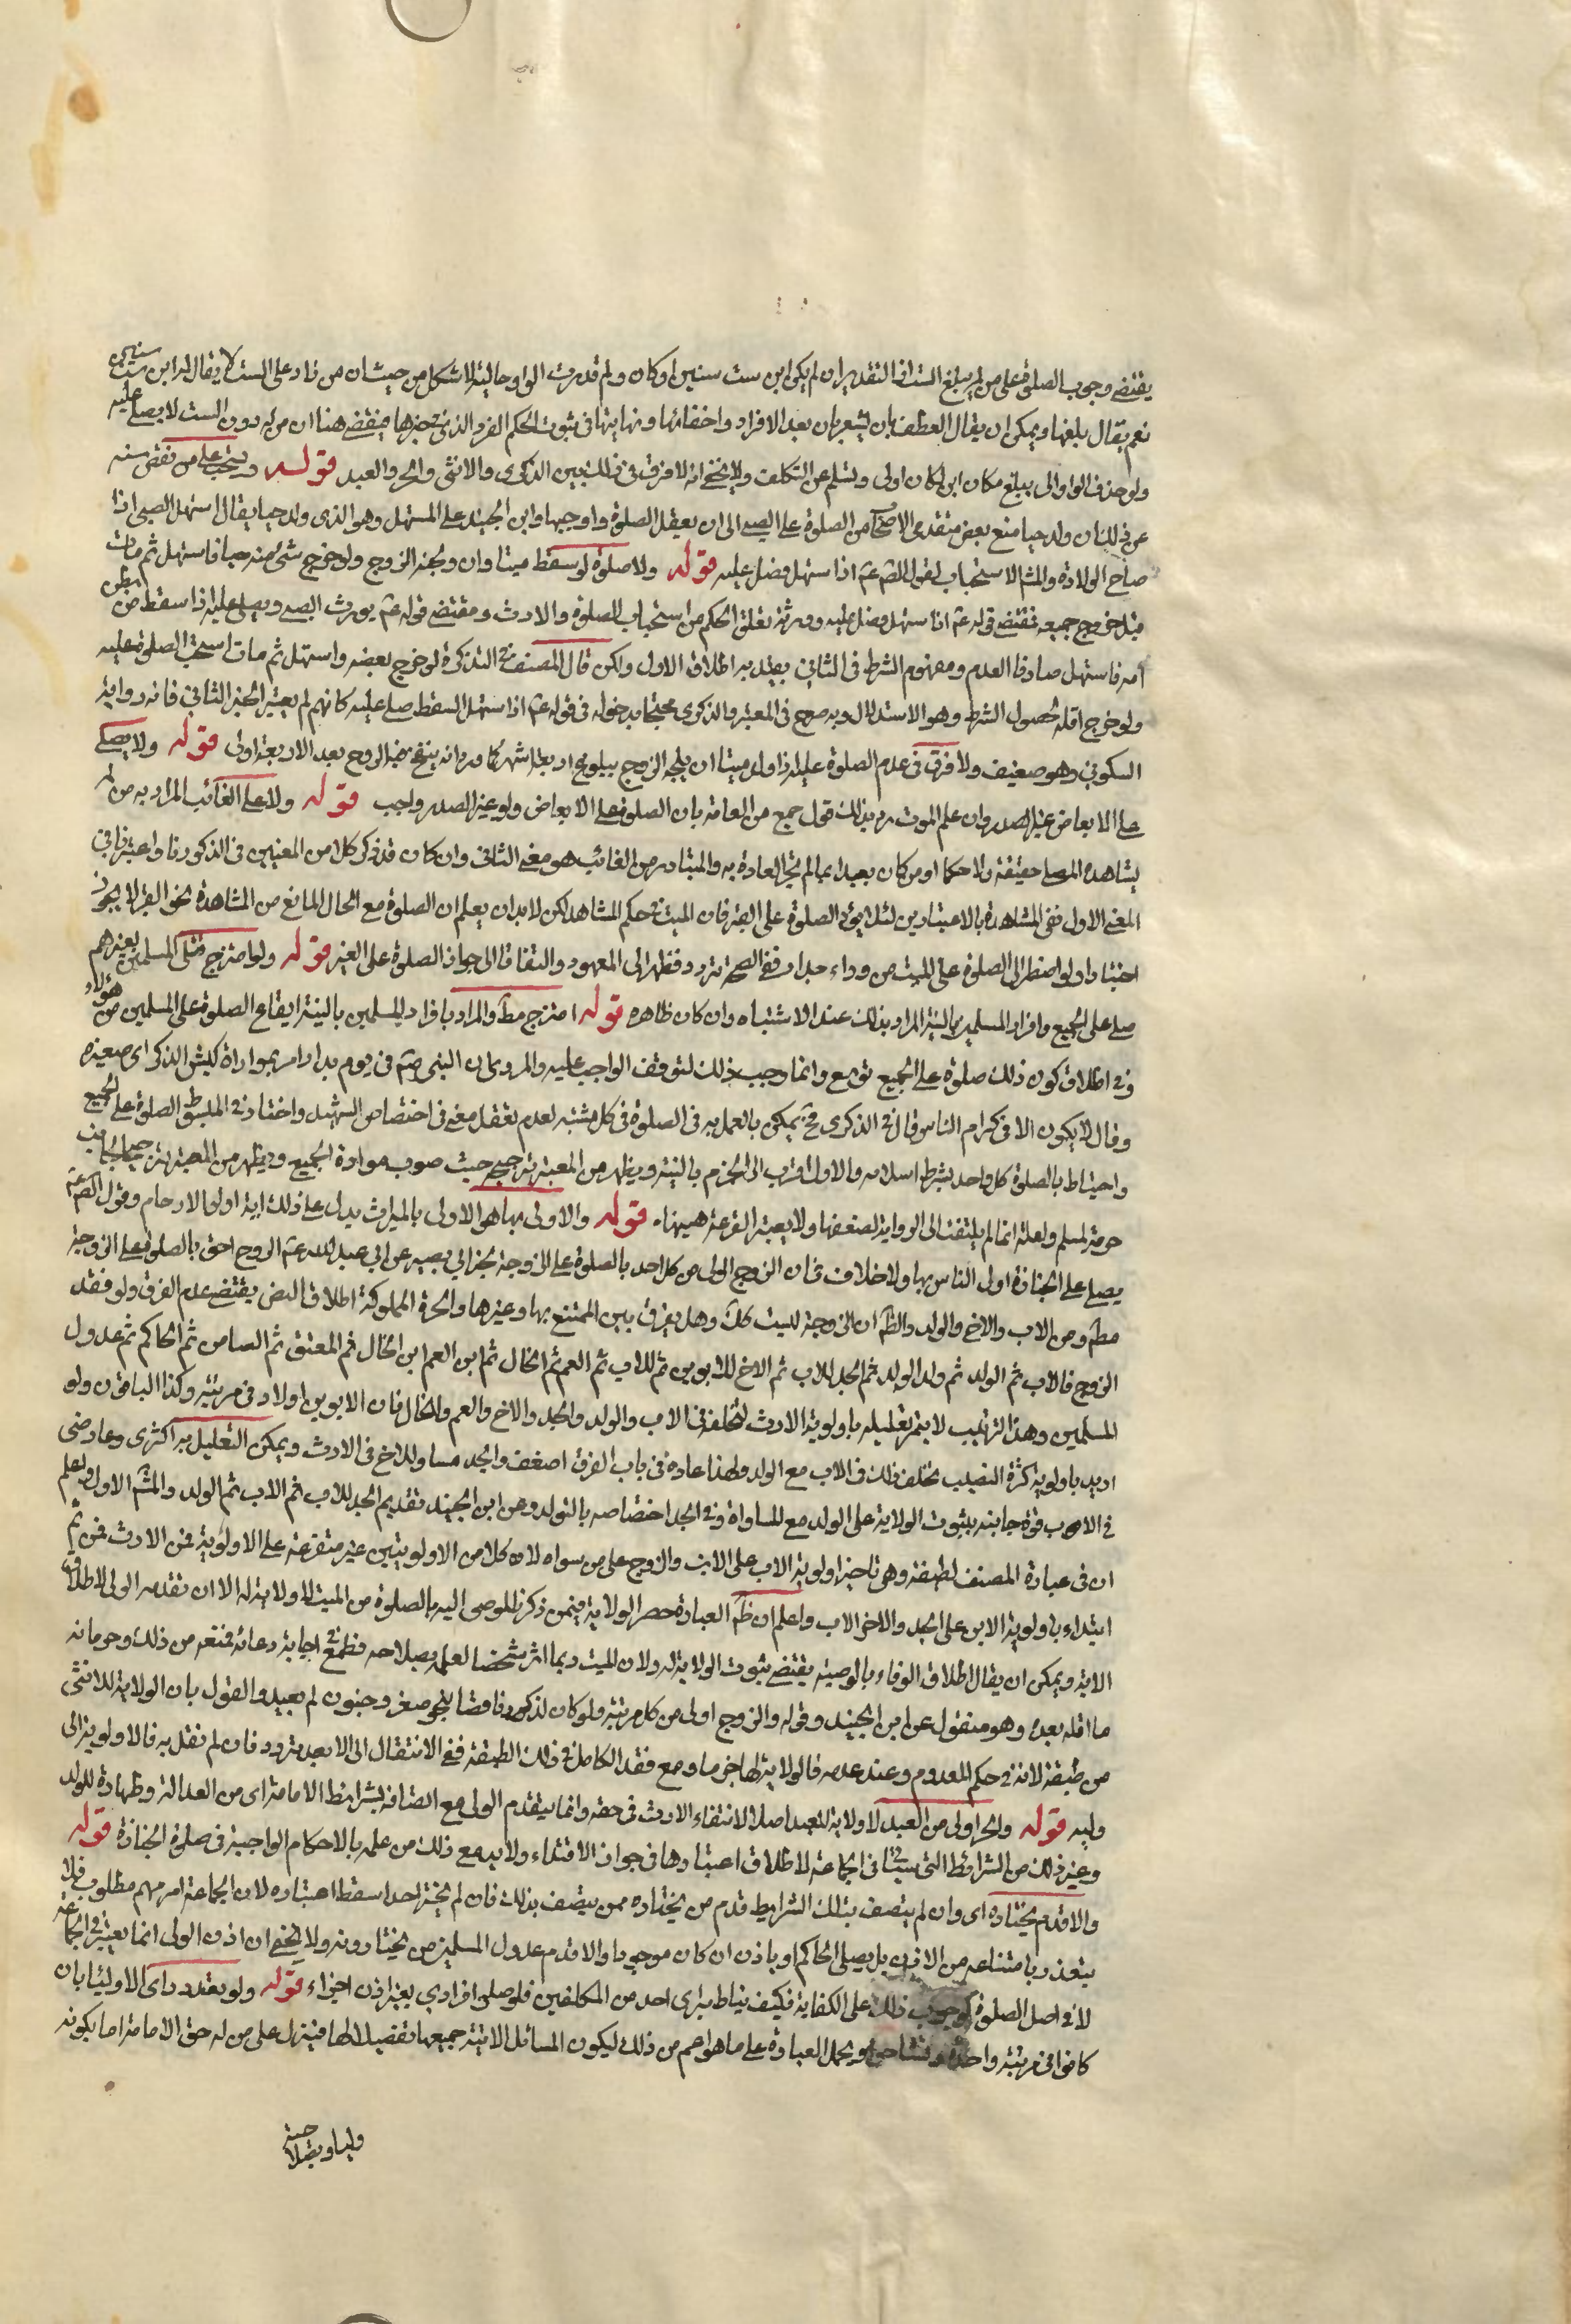 يقتضى وجوب الصلوة على من لم يبلغ الست اذ التقدير ان لم يكن ابن ست سنين او كان ولم قدرت الواو حالية لاشكل من حيث ان من زاد على الست لا يقال له ابن ست سنين
نعم يقال بلغها ويمكن ان يقال العطف بان يشعر بان بعد الافراد واخفائها ونهايتها فى ثبوت الحكم الفرد الذى تحيزها فيقتضى هنا ان من له دون الست لا يصلى عليه
ولو حذف الواو الى يبلغ مكان ابن لكان اولى وتسلم عن التكلف ولا يخفى انه لا فرق فى ذلك بين الذكر والانثى والحر والعبد قوله ويستحب على من نقص سنه
عن ذلك ان ولد حيا منع بعض متقدمى الاصحاب من الصلوة على الصبى الى ان يعقل الصلوة واوجبها ابن الجنيد على المستهل وهو الذى ولد حيا يقال استهل الصبى اذا
صاح الولادة والمشهور الاستحباب لقول الصادق عم اذا استهل فصل عليه قوله ولا صلوة لو سقط ميتا وان ولجته الروح ولو خرج شئ منه حيا فاستهل ثم مات
قبل خروج جميعه فمقتضى قوله عم اذا استهل فصل عليه وورثه تعلق الحكم من استحباب الصلوة والارث ومقتضى قوله عم يورث الصبى ويصلى عليه اذا سقط من بطن
امه فاستهل صارخا العدم ومفهوم الشرط فى الثانى يقيد به اطلاق الاول ولكن قال المصنف فى التذكرة لو خرج بعضه واستهل ثم مات استحب الصلوة عليه
ولو خرج اقله لحصول الشرط وهو الاستدلال وبه صرح فى المعتبر والذكرى محتجا بدخوله فى قوله عم اذا استهل السقط صلى عليه كانهم لم يعتبر الخبر الثانى فانه رواية
السكونى وهو ضعيف ولا فرق فى عدم الصلوة عليه اذا ولد ميتا ان يلجه الروح ببلوغ اربعة اشهر كما ورد انه ينفخ فيه الروح بعد الاربعة اولى قوله ولا يصلى
على الابعاض غير الصدر وان علم الموت رد بذلك قول جمع من العامة بان الصلوة على الابعاض ولو غير الصدر واجب قوله ولا على الغائب المراد به من لم
يشاهده المصلى حقيقة ولا حكما او من كان بعيدا بما لم تجر العادة به والمتبادر من الغائب هو معنى الثانى وان كان قد ذكر كلا من المعنيين فى الذكر
المعنى الاول ففى المشاهدة بالاعتبارين لئلا يؤدى الصلوة على القبر فان الميت فى حكم المشاهد لكن لا بد ان يعلم ان الصلوة مع الحال المانع من المشاهدة نحو القبر لا يجوز
اختيارا ولو اضطر الى الصلوة على الميت من وراء جدار ففى الصحة تردد فنظر الى المعهود والتفاتا الى جواز الصلوة على القبر قوله ولو امتزج قتلى المسلمين بغيرهم
صلى على الجميع وافراد المسلمين بالنية المراد بذلك عند الاشتباه وان كان ظاهره قوله امتزج مط والمراد بافراد المسلمين بالنية ايقاع الصلوة على المسلمين من هؤلاء
وفى اطلاق كون ذلك صلوة على الجميع توسع وانما وجب ذلك لتوقف الواجب عليه والمروى ان النبى صم فى يوم بدر امر بمواراة كميش الذكر اى صغيره
وقال لا يكون الا فى كرام الناس قال فى الذكرى فح يمكن بالعمل به فى الصلوة فى كل مشتبه لعدم تعقل معنى فى اختصاص الشهيد واختار فى المبسوط الصلوة على الجميع
واحتياط بالصلوة كل واحد بشرط اسلامه والاول اقرب الى الجزم بالنية ويظهر من المعتبر ترجيحه حيث صوب موارة الجميع ويظهر من المعتبر ترجيحا لجانب
حرمة المسلم ولعله انما لم يلتفت الى الرواية لضعفها ولا يعتبر القرعة هيهنا قوله والاولى بها هو الاولى بالميراث يدل على ذلك اية اولى الارحام وقول الصادق عم
يصلى على الجنازة اولى الناس بها ولا خلاف فى ان الزوج اولى من كل احد بالصلوة على الزوجة لخبر ابى بصير عن ابى عبد الله عم الزوج احق بالصلوة على الزوجة
مط ومن الاب والاخ والولد والظ ان الزوجة ليست كك وهل يفرق بين المتمتع بها وغيرها والحرة المملوكة اطلاق النص يقتضى عدم الفرق ولو فقد
الزوج فالاب ثم الولد ثم ولد الولد ثم الجد للاب ثم الاخ للابوين ثم للاب ثم العم ثم الخال ثم ابن العم ابن الخال ثم المعتق ثم الضامن ثم الحاكم ثم عدول
المسلمين وهذا الترتيب لا يتم تعليله باولوية الارث لتخلفه فى الاب والولد والجد والاخ والعم والخال فان الابوين اولاد فى مرتبته وكذا الباقون ولو
اريد باولوية كثرة النصيب تخلف ذلك فى الاب مع الولد ولهذا عاده فى باب الفرق اضعف والجد مساو للاخ فى الارث ويمكن التعليل بر اكثرى وعارضى
فى الاب قوة جانبه بثبوت الولاية على الولد مع المساواة وفى الجد اختصاصه بالتولد وعن ابن الجنيد تقديم الجد للاب ثم الاب ثم الولد والمشهور الاول وليعلم
ان فى عبارة المصنف لطيفة وهى تاخير اولوية الاب على الابن والزوج على من سواه لان كلا من الاولويتين غير متفرعة على الاولوية فى الارث فمن ثم
ابتداء باولوية الابن على الجد والاخ الاب واعلم ان ظ العبارة حصر الولاية فيمن ذكر فالموصى اليه بالصلوة من الميت لا ولاية له الا ان تقدمه الولى لاطلاق
الاية ويمكن ان يقال اطلاق الوفاء بالوصية يقتضى ثبوت الولاية له ولان الميت ربما اثر شخصا لعلمه بصلاحه فطمع فى اجابة دعائه فمنعه من ذلك وحرمانه
ما امله بعده وهو منقول عن ابن الجنيد وقوله والزوج اولى من كل مرتبته ولو كان الذكور ناقصا بنحو صغر وجنون لم يعبد والقول بان الولاية للانثى
من طبقته لانه فى حكم المعدوم وعند عدمه فالولاية لها جزما ومع فقد الكامل فى ذلك الطبقة ففى الانتقال الى الابعد تردد فان لم نقل به فالاولوية الى
وليه قوله والحر اولى من العبد لا ولاية للعبد اصلا لانتفاء الارث فى حقه وانما يتقدم الولى مع اتصافه بشرايط الامامة اى من العدالة وطهارة المولد
وغير ذلك من الشرائط التى سيئتى فى الجماعة لاطلاق اعتبارها فى جواز الاقتداء ولا بد مع ذلك من علمه بالاحكام الواجبة فى صلوة الجنازة قوله
والا قدم من يختاره اى وان لم يتصف بتلك الشرايط قدم من يختاره ممن يتصف بذلك فان لم يختر احدا سقط اعتباره لان الجماعة امر مهم مطلوب فلا
يتعذر بامتناعه من الاذن بل يصلى الحاكم او ياذن ان كان موجودا والا قدم عدول المسلمين من يختارونه ولا يخفى ان اذن الولى انما يعتبر فى الجماعة
لا فى اصل الصلوة لوجوب ذلك على الكفاية فكيف يناط براى احد من المكلفين فلو صلوا فرادى بغير اذن اجزاء قوله ولو تعدد راى الاولياء بان
كانوا فى مرتبة واحدة وتشاحوا ويحمل العبارة على ما هو اعم من ذلك ليكون المسائل الاتية جميعها تفصيلا لها فينزل على من له حق الامامة اما بكونه
وليا وبصلاحية